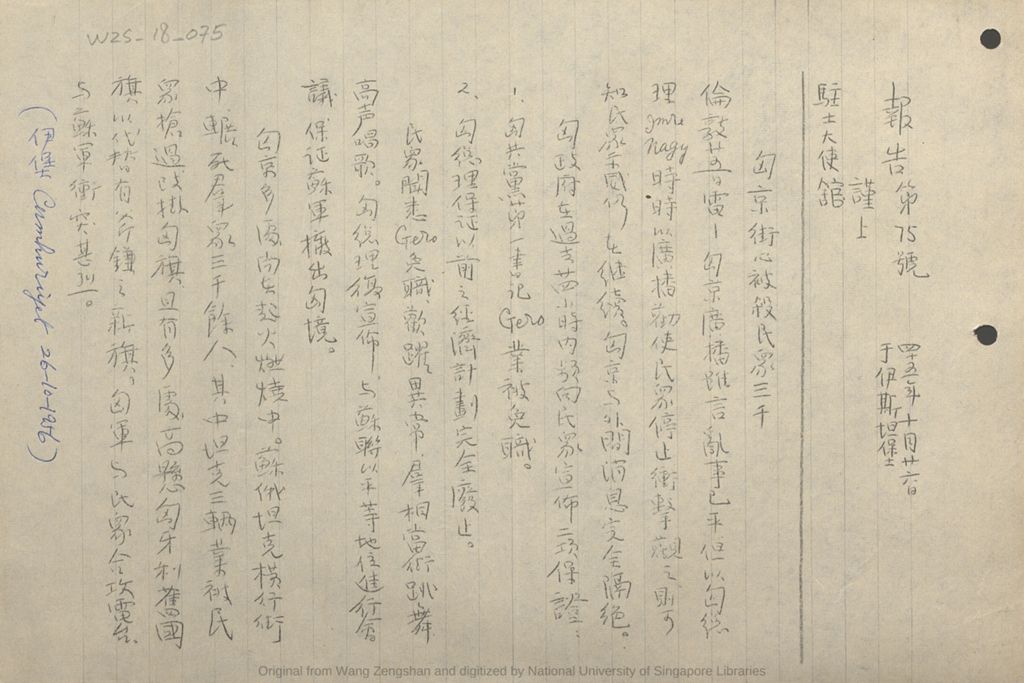 WZS-18-075
報告第75號
四十五年十月廿六日
于伊斯坦堡
謹上
駐土大使舘
匈京街心被殺民眾三千
倫敦廿五日電—匈京廣播雖言亂事已平但以匈總
理Imre Nagy時時以廣播勸使民眾停止衝擊觀之則可
知民眾示威仍在繼續。匈京与外間消息完全隔絕。
匈政府在過去廿四小時內頻向民眾宣佈二項保證：
1、匈共黨第一書記Gero業被免職。
2、匈總理保证以前之經濟計劃完全廢止。
民眾聞悉Gero免職歡躍異常，羣相當街跳舞
高声唱歌。匈總理復宣佈，与蘇聯以平等地位進行會
議保证蘇軍撤出匈境。
匈京多處尚在起火燃燒中。蘇俄坦克橫行街
中，輾死羣眾三千餘人，其中坦克三輛業被民
眾搶過改掛匈旗，且有多處高懸匈牙利舊國
旗以代替有斧鐮之新旗。匈軍与民眾合攻電台，
与蘇軍衝突甚烈。
(伊堡 Cumhuriyet 26-10-1956)
Original from Wang Zengshan and digitized by National University of Singapore Libraries